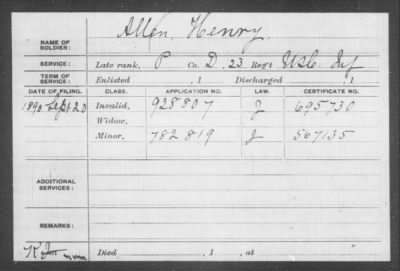 Allen, Henry.
NAME OF SOLDIER:
SERVICE: Late rank, P Co. D, 23 Reg't U.S.C. Inf
TERM OF SERVICE: Enlisted , 1 Discharged , 1
DATE OF FILING. CLASS. APPLICATION NO. LAW. CERTIFICATE NO.
1890 Sept 20 Invalid, 928807 J 695730
Widow,
Minor, 782819 J 567135
ADDITIONAL SERVICES:
REMARKS:
Died , 1 , at